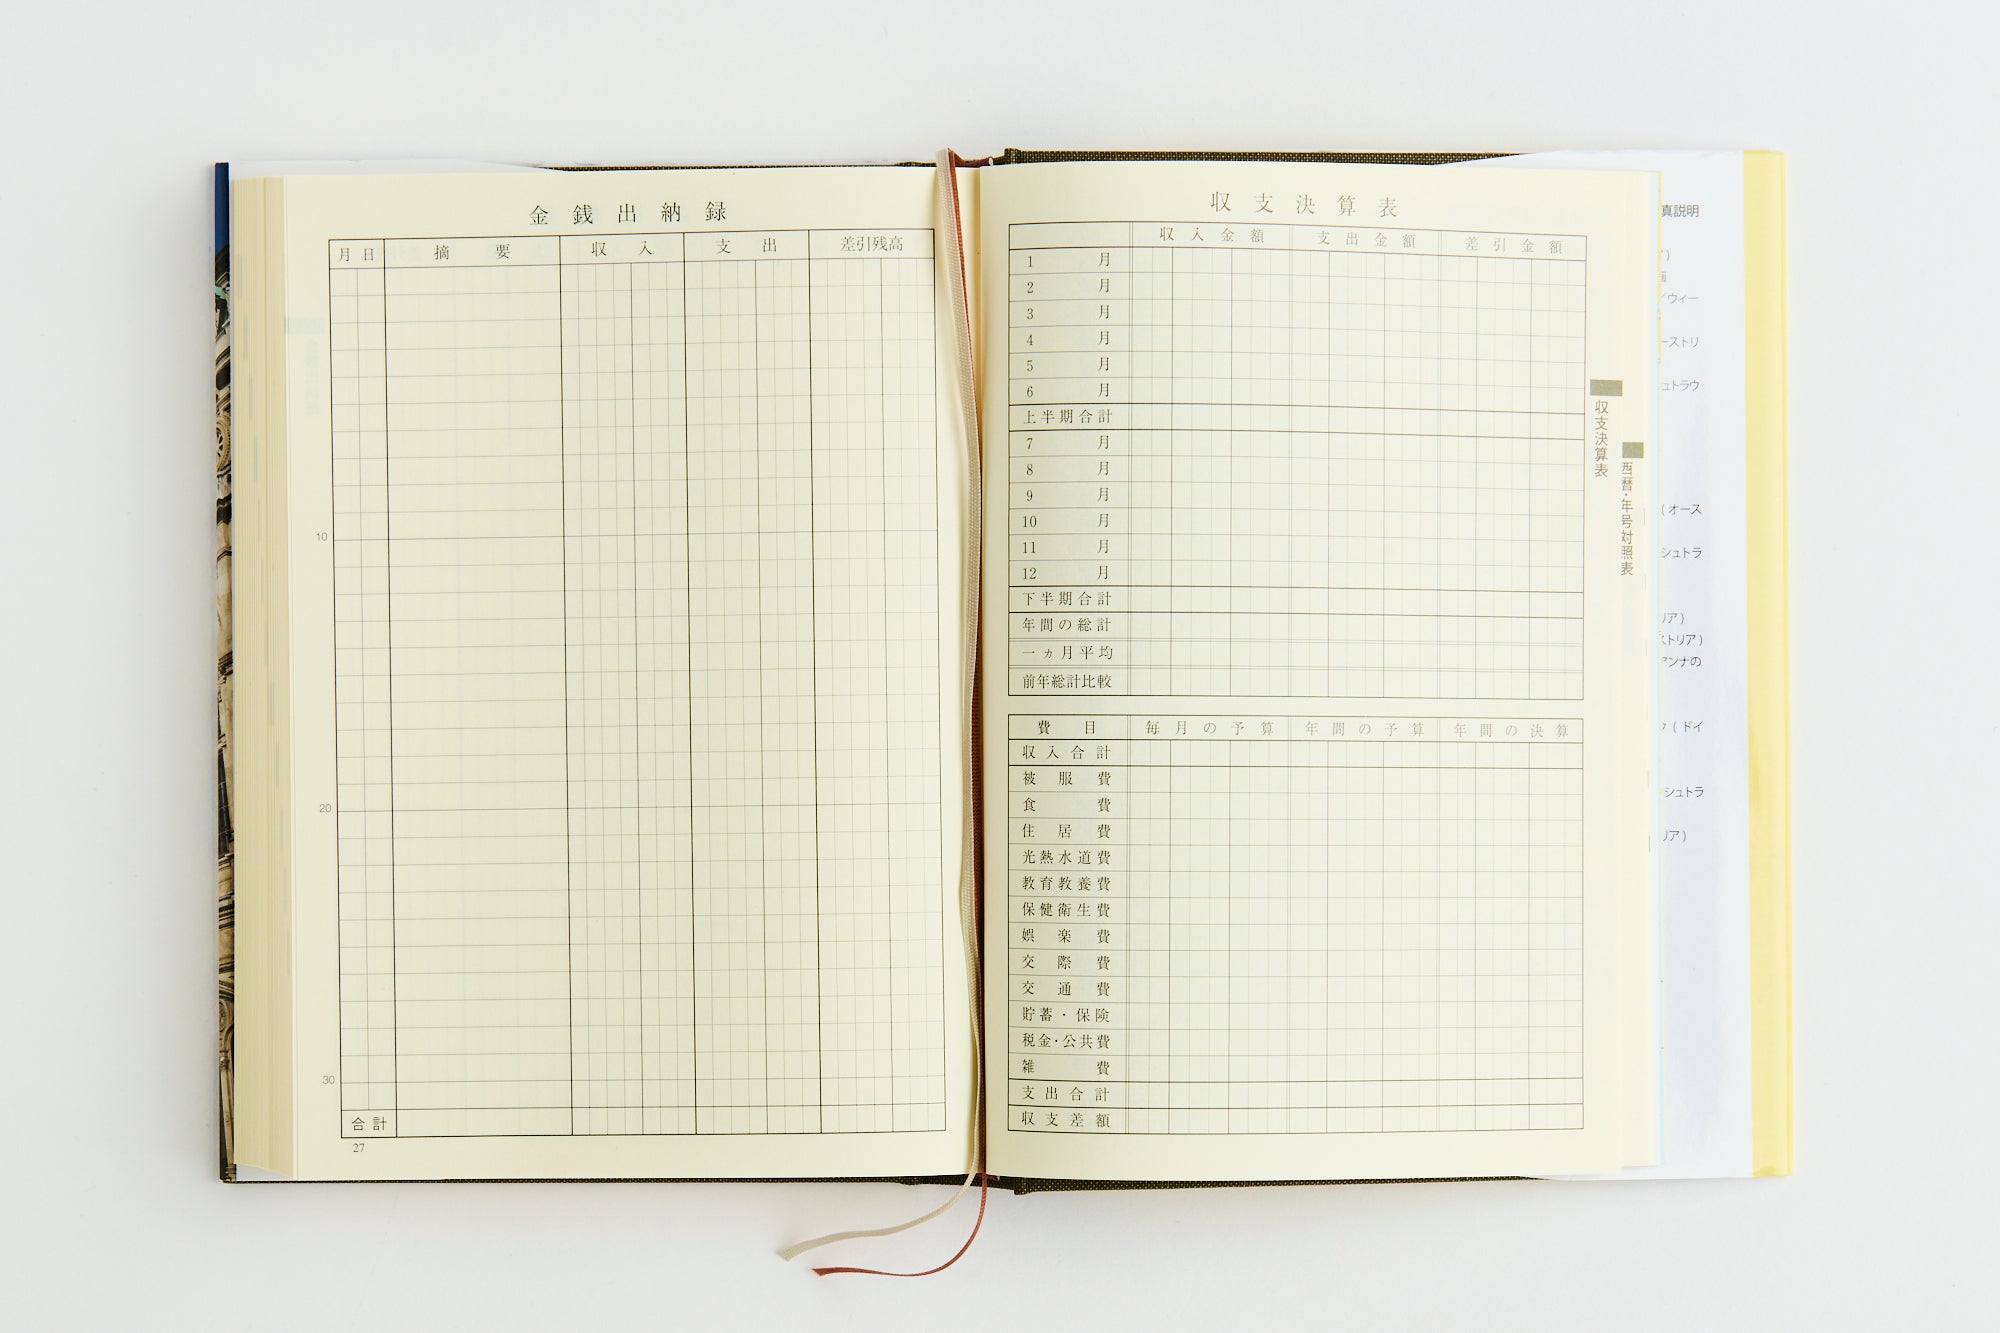 金銭出納録
月日 摘要 収入 支出 差引残高
10
20
30
合計
27
収支決算表
収入金額 支出金額 差引金額
1月
2月
3月
4月
5月
6月
上半期合計
7月
8月
9月
10月
11月
12月
下半期合計
年間の総計
一ヵ月平均
前年総計比較
費目 毎月の予算 年間の予算 年間の決算
収入合計
被服費
食費
住居費
光熱水道費
教育教養費
保健衛生費
娯楽費
交際費
交通費
貯蓄・保険
税金・公共費
雑費
支出合計
収支差額
収支決算表
西暦・年号対照表
真説明
/ウィー
ーストリ
ュトラウ
(オース
シュトラ
リア)
ストリア)
アンナの
(ドイ
シュトラ
リア)